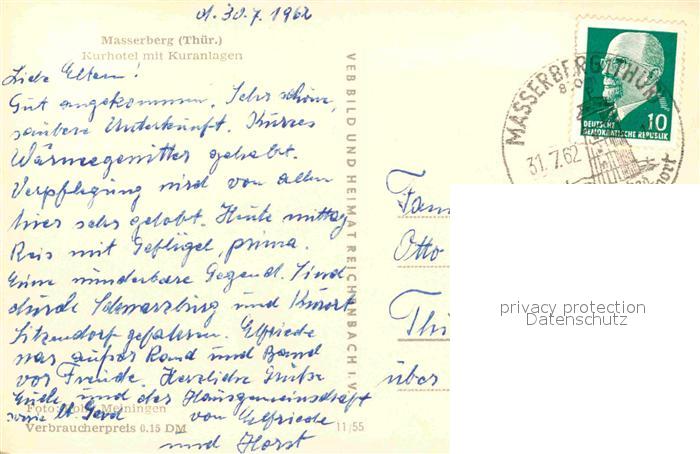 d. 30.7.1962
Masserberg (Thür.)
Kurhotel mit Kuranlagen
Liebe Eltern!
Gut angekommen. Sehr schöne,
saubere Unterkunft. Kurzes
Wärmegewitter gehabt.
Verpflegung wird von allen
hier sehr gelobt. Heute mittag
Reis mit Geflügel, prima.
Eine wunderbare Gegend. Sind
durch Schwarzburg und Kurort
Sitzendorf gefahren. Elfriede
war außer Rand und Band
vor Freude. Herzliche Grüße
Euch und der Hausgemeinschaft
sowie Gerd von Elfriede
und Horst
Foto Meiningen
Verbraucherpreis 0.15 DM
11/55
VEB BILD UND HEIMAT REICHENBACH I.V.
MASSERBERG (THÜR)
31.7.62
DEUTSCHE
DEMOKRATISCHE REPUBLIK
10
Fam
Otto
Thi
über
privacy protection
Datenschutz